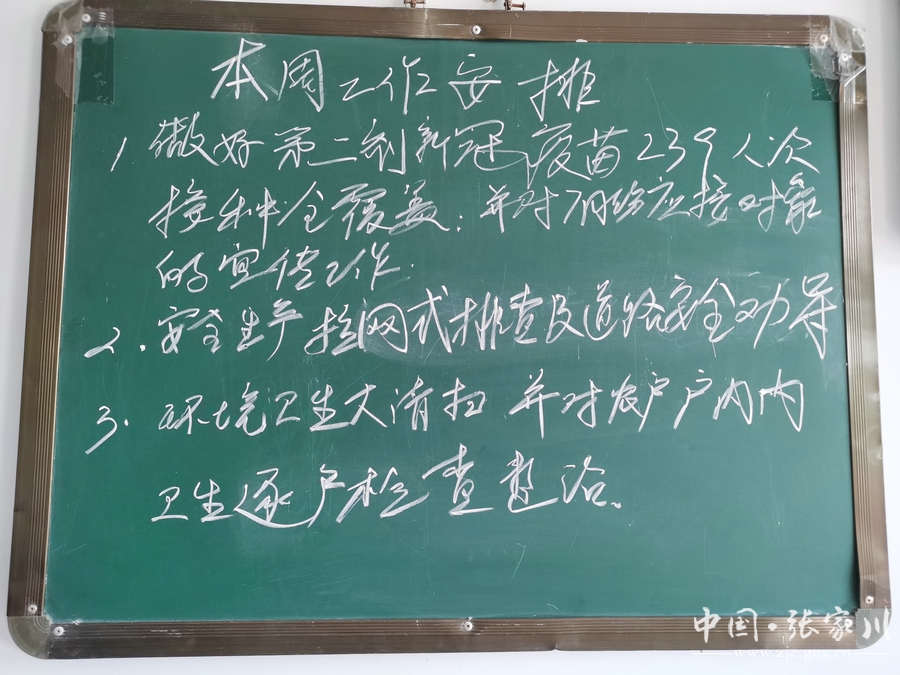 本周工作安排
1 做好第二剂新冠疫苗239人次
接种全覆盖.并对所有应接对象
的宣传工作.
2.安全生产拉网式排查及道路安全劝导
3.环境卫生大清扫 并对农户户内内
卫生逐户检查整治。
中国·张家川